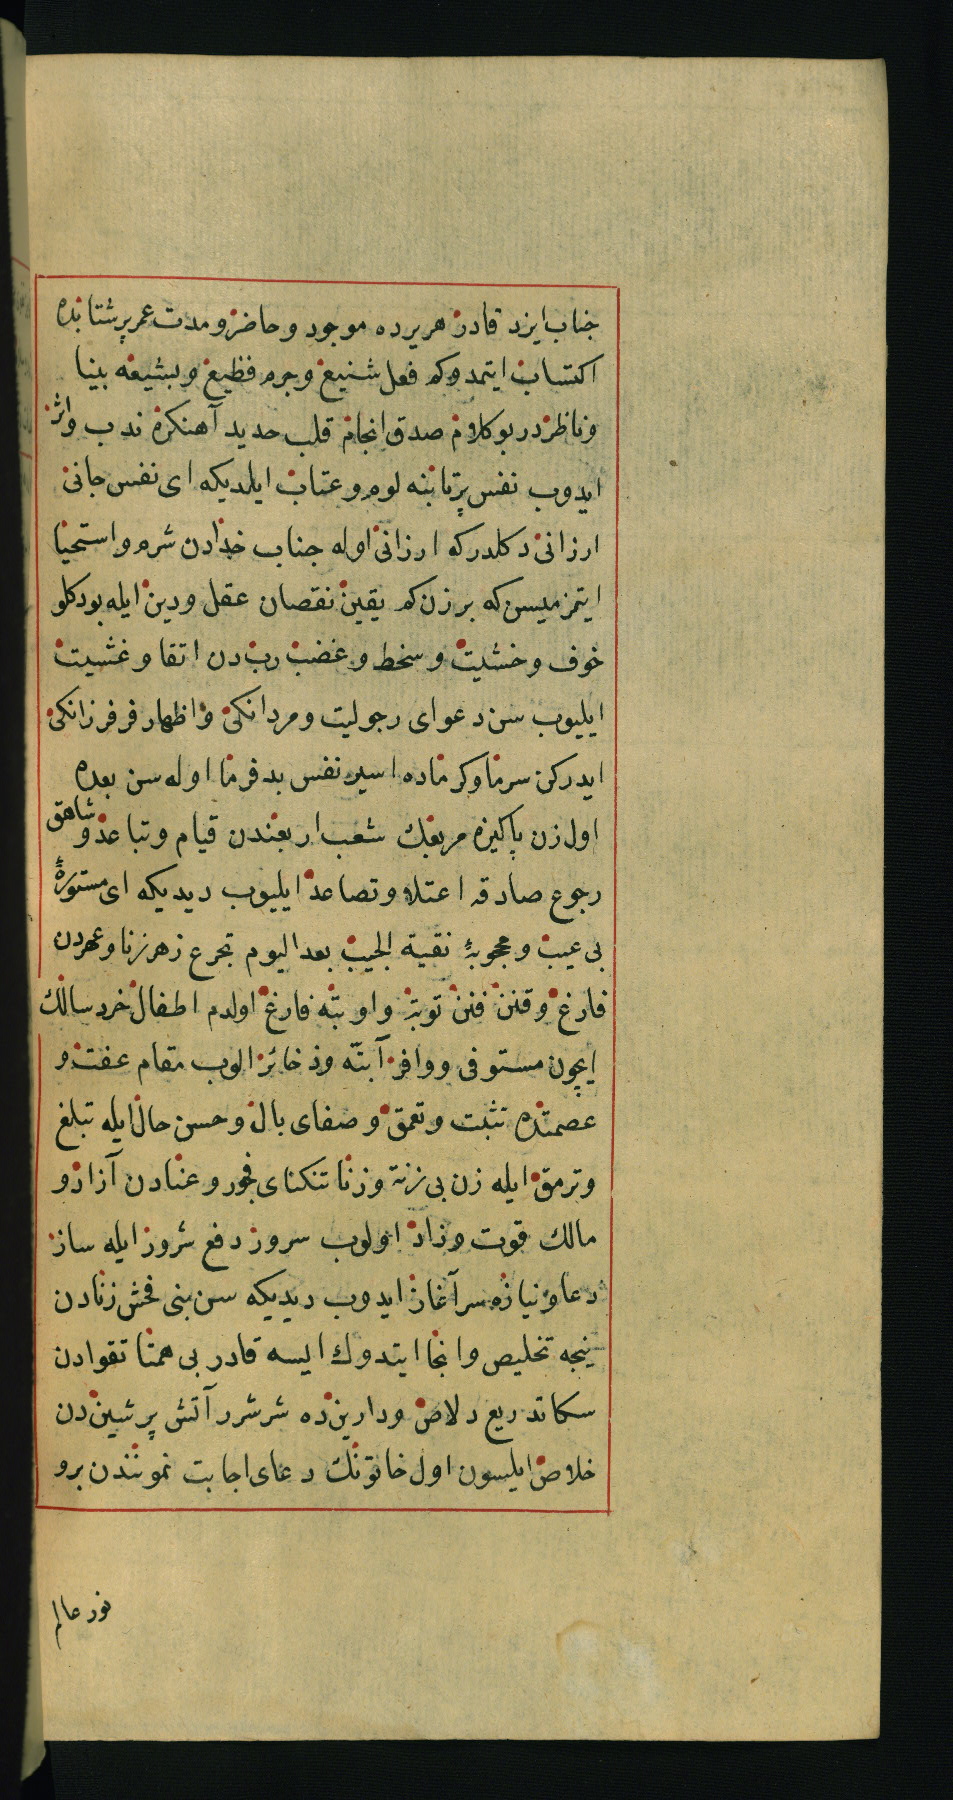 جناب ایزد قادر هریرده موجود و حاضر و مدت عمر پر شتابده
اکتساب ایتمدوکم فعل شنیع و جرم فظیع و بشیعه بینا
و ناظردر بو کلام صدق انجام قلب حدید آهنکره ندب و اثر
ایدوب نفس پر تابنه لوم و عتاب ایلدیکه ای نفس جانی
ارزانی دکلدرکه ارزانی اوله جناب خدادن شرم و استحیا
ایتمزمیسن که بر زن کم یقین نقصان عقل و دین ایله بودکلو
خوف و خشیت و سخط و غضب ربدن اتقا و غشیت
ایلیوب سن دعوای رجولیت و مردانکی و اظهار فر فرزانکی
ایدرکن سرما و کرماده اسیر نفس بدفرما اوله سن بعده
اول زن پاکیزه مربعک شعب اربعندن قیام و تباعد و شاهق
رجوع صادقه اعتلا و تصاعد ایلیوب دیدیکه ای مستورهٔ
بی عیب و محجوبهٔ نقیة الجیب بعد الیوم تجرع زهر زنا و عهردن
فارغ و قنن فنن توبه و اوبته فارغ اولدم اطفال خرد سالک
ایچون مستوفی و وافر آبنه و ذخائر الوب مقام عفت و
عصمتده تثبت و تعمق و صفای بال و حسن حال ایله تبلغ
و ترمق ایله زن بی زنة و زنا تنکنای فجور و عنادن آزاد و
مالک قوت و زاد اولوب سرور دفع شرور ایله ساز
دعا و نیازه سرآغاز ایدوب دیدیکه سن بنی فحش زنادن
نیجه تخلیص و انجا ایتدوک ایسه قادر بی همتا تقوادن
سکا تدریع دلاص و دارینده شر شرر آتش پر شیندن
خلاص ایلسون اول خاتونک دعای اجابت نموننندن برو
نور عالم